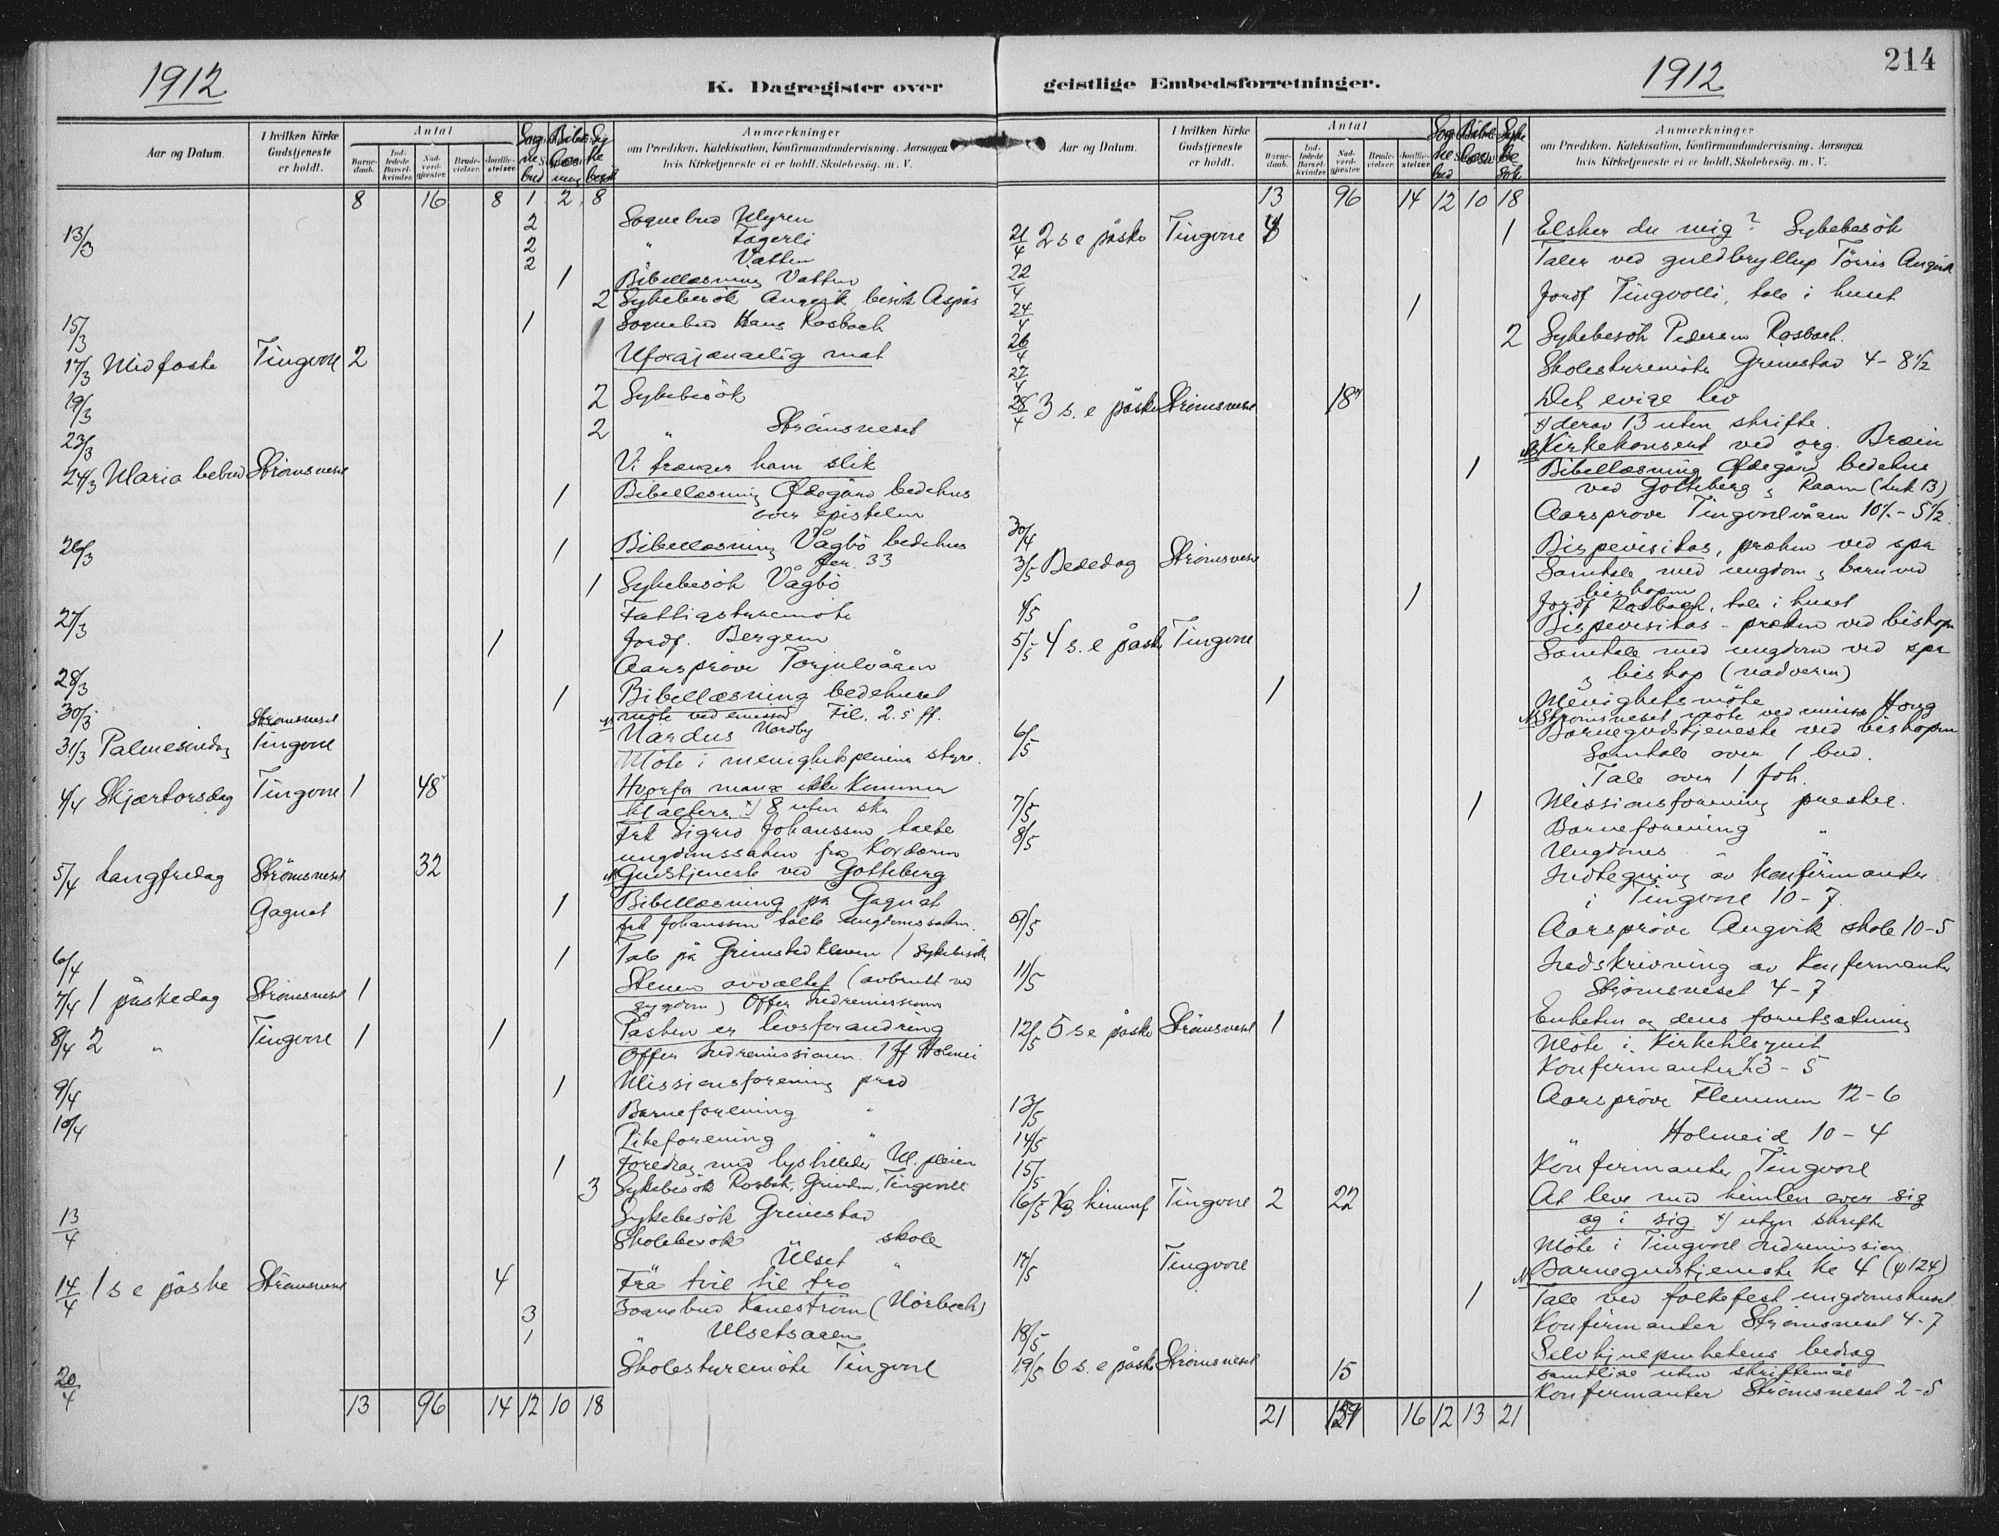 1912
K. Dagregister over
Aar og Datum.
I hvilken Kirke Gudstjeneste er holdt.
Antal
Barnedaab.
Indledede Barselkvinder.
Nadverdgjæster.
Brudevielser.
Jordfæstelser.
Sognebud
Bibellæsning
Sykebesøk
Anmærkninger
om Prædiken. Katekisation, Konfirmandundervisning. Aarsagen
hvis Kirketjeneste ei er holdt. Skolebesøg. m. V.
8 16 8 1 2 8
13/3 2 Sognebud Myren
2 " Fagerli
2 Vatten
1 Bibellæsning Vatten
2 Sykebesök Angvik besök Aspås
15/3 1 Sognebud Hans Rosbach
17/3 Midfaste Tingvoll 2 Uforgjængelig mat
19/3 2 Sykebesök
23/3 2 " Strømsneset
24/3 Maria bebud Strømsneset Vi trænger ham slik
1 Bibellæsning Ødegård bedehus
over epistelen
26/3 1 Bibellæsning Vågbö bedehus
Jer. 33
1 Sykebesök Vågbö
27/3 Fattigstyremöte
1 Jordf. Bergem
28/3 Aarspröve Torjulvågen
30/3 1 Bibellæsning bedehuset
Strømsneset möte ved emissær Fil. 2.5 ff.
31/3 Palmesöndag Tingvoll Nardus Nordby
Möte i menighetspleiens styre.
4/4 Skjærtorsdag Tingvoll 1 48 Hvorfor mange ikke kommer
til alters x) 8 uten skr
Frk Sigrid Johanssen talte
ungdomssaken fra kordören
5/4 Langfredag Strömsneset 32 Gudstjeneste ved Gotteberg
Gagnat 1 Bibellæsning på Gagnat
frk Johanssen talte ungdomssaken.
6/4 1 Tale på Grimstad Kleven / Sykebesök
7/4 1 påskedag Strömsneset 1 Stenen avvæltet (avbrutt ved
sygdom) Offer Indremissionen
8/4 2 " Tingvoll 1 1 Påsken er livsforandring
Offer Indremissionen. 1 Jf Holmei
9/4 1 Missionsforening præd
10/4 Barneforening "
Pikeforening "
1 Foredrag med lysbilleder M. pleien
3 Sykebesök Rosbak, Grinden, Tingvoll
13/4 Sykebesök Grimstad
Skolebesök skole
Ulset "
14/4 1 s e påske Strömsneset 4 Frå tvil til tro
3 Sognebud Kaneström (Mörbech)
1 " Ulsetsagen
20/4 Skolestyremöte Tingvoll
13 96 14 12 10 18
geistlige Embedsforretninger.
1912
214
Aar og Datum.
I hvilken Kirke Gudstjeneste er holdt.
Antal
Barnedaab.
Indledede Barselkvinder.
Nadverdgjæster.
Brudevielser.
Jordfæstelser.
Sognebud
Bibel
Sykebesök
Anmærkninger
om Prædiken. Katekisation, Konfirmandundervisning. Aarsagen
hvis Kirketjeneste ei er holdt. Skolebesög. m. V.
13 96 14 12 10 18
21/4 2 s e påske Tingvoll 4 1 Elsker du mig? Sykebesök
22/4 Taler ved guldbryllup Törris Angvik
24/4 1 Jordf Tingvoll, tale i huset
26/4 2 Sykebesök Pedersen Rosbach.
27/4 Skolestyremöte Grimstad 4 - 8 1/2
28/4 3 s. e påske Strømsneset 18 x) Det evige liv
x) derav 13 uten skrifte.
Kirkekonsert ved org. Bræin
1 Bibellæsning Ødegård bedehus
ved Gotteberg og Raam (Luk 13)
30/4 Aarspröve Tingvollvågen 10 1/2 - 5 1/2
3/5 Bededag Strömsneset Bispevisitas, præken ved spr
Samtale med ungdom og barn ved
bishopen
4/5 1 Jordf Rosbach, tale i huset
5/5 4 s. e påske Tingvoll Bispevisitas - præken ved bishopen
Samtale med ungdom ved spr
og bishop (nadveren)
1 Menighetsmöte
Strömsneset, möte ved miss. Houg
6/5 Barnegudstjeneste ved bishopen
Samtale over 1 bud.
Tale over 1 Joh.
7/5 1 Missionsforening præstel.
8/5 Barneforening "
Ungdoms
Indtegning av konfirmanter
i Tingvoll 10 - 7
9/5 Aarspröve Angvik skole 10 - 5
11/5 Indskrivning av Konfermanter
Strömsneset 4 - 7
12/5 5 s e påske Strömsneset 1 Enheten og dens forutsætning
Möte i Kirkehlsynet
Konfirmanter 13 - 5
13/5 Aarspröve Flemmen 12 - 6
14/5 " Holmeid 10 - 4
15/5 Konfirmanter Tingvoll
16/5 Kr himmf Tingvoll 2 22 At leve med himlen over sig
og i sig x) uten skrifte
Möte i Tingvoll Indremission
17/5 Tingvoll Barnegudstjeneste kl 4 (ψ 124)
1 Tale ved folkefest ungdomshuset
18/5 Konfirmanter Strømsneset 4 - 7
19/5 6 s. e påske Strömsneset 15 Selvhjulpenhetens bedrag
samtlige uten skriftemål
Konfirmanter Strömsneset 2 - 5
21 151 16 12 13 21